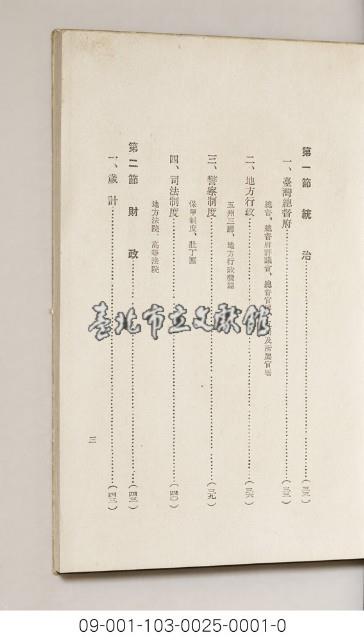 第一節 統治……(三三)
一、臺灣總督府……(三三)
總督、總督府評議會、總督官房及所屬官署
二、地方行政……(三六)
五州三廳、地方行政機關
三、警察制度……(三九)
保甲制度、壯丁團
四、司法制度……(四〇)
地方法院、高等法院
第二節 財政……(四三)
一、歲計……(四三)
三
臺北市立文獻館
09-001-103-0025-0001-0